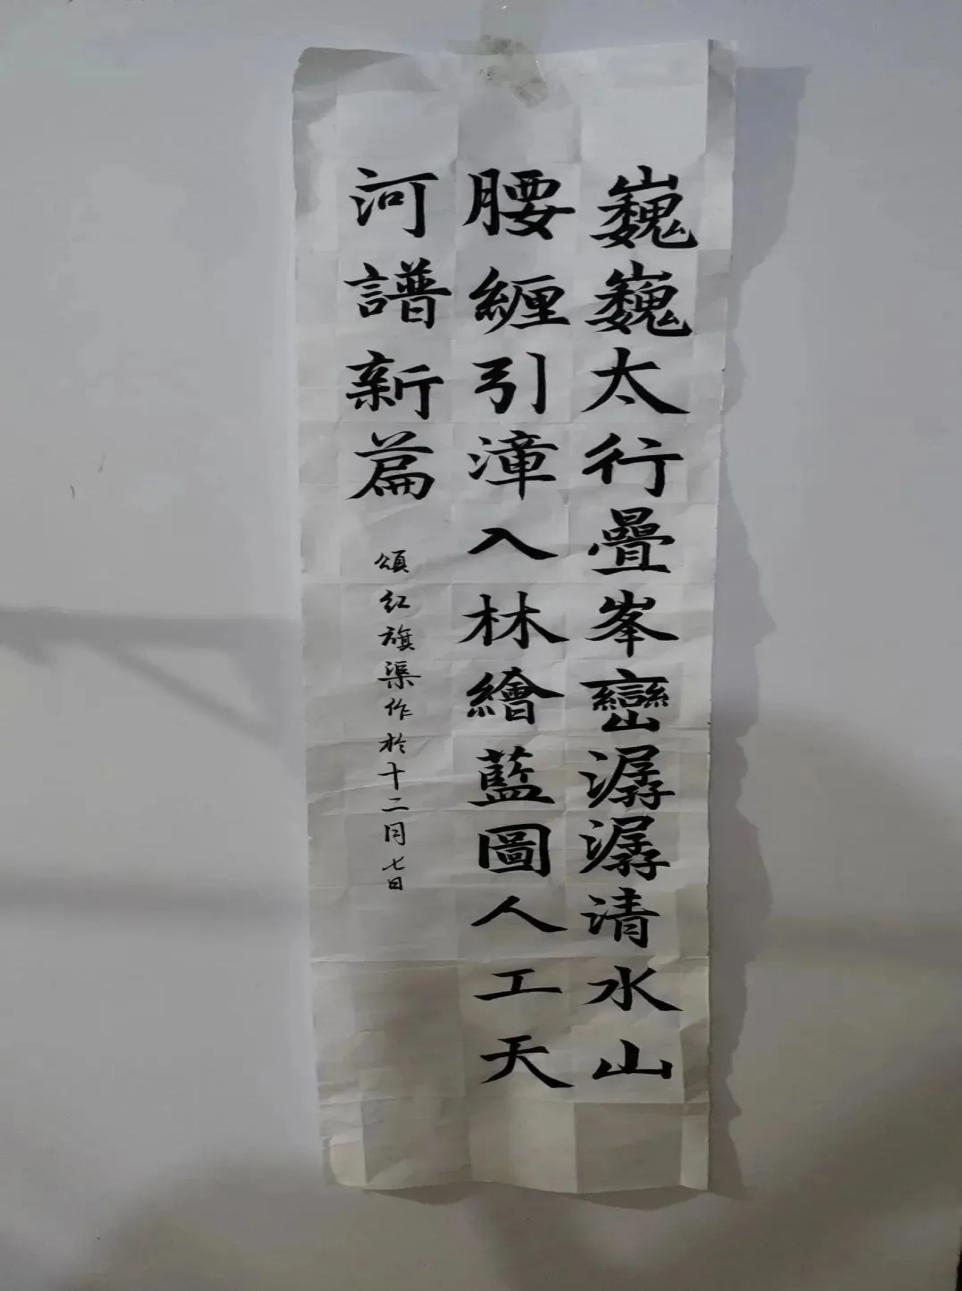 巍巍太行疊峯巒潺潺清水山
腰纏引漳入林繪藍圖人工天
河譜新篇
頌紅旗渠作於十二月七日